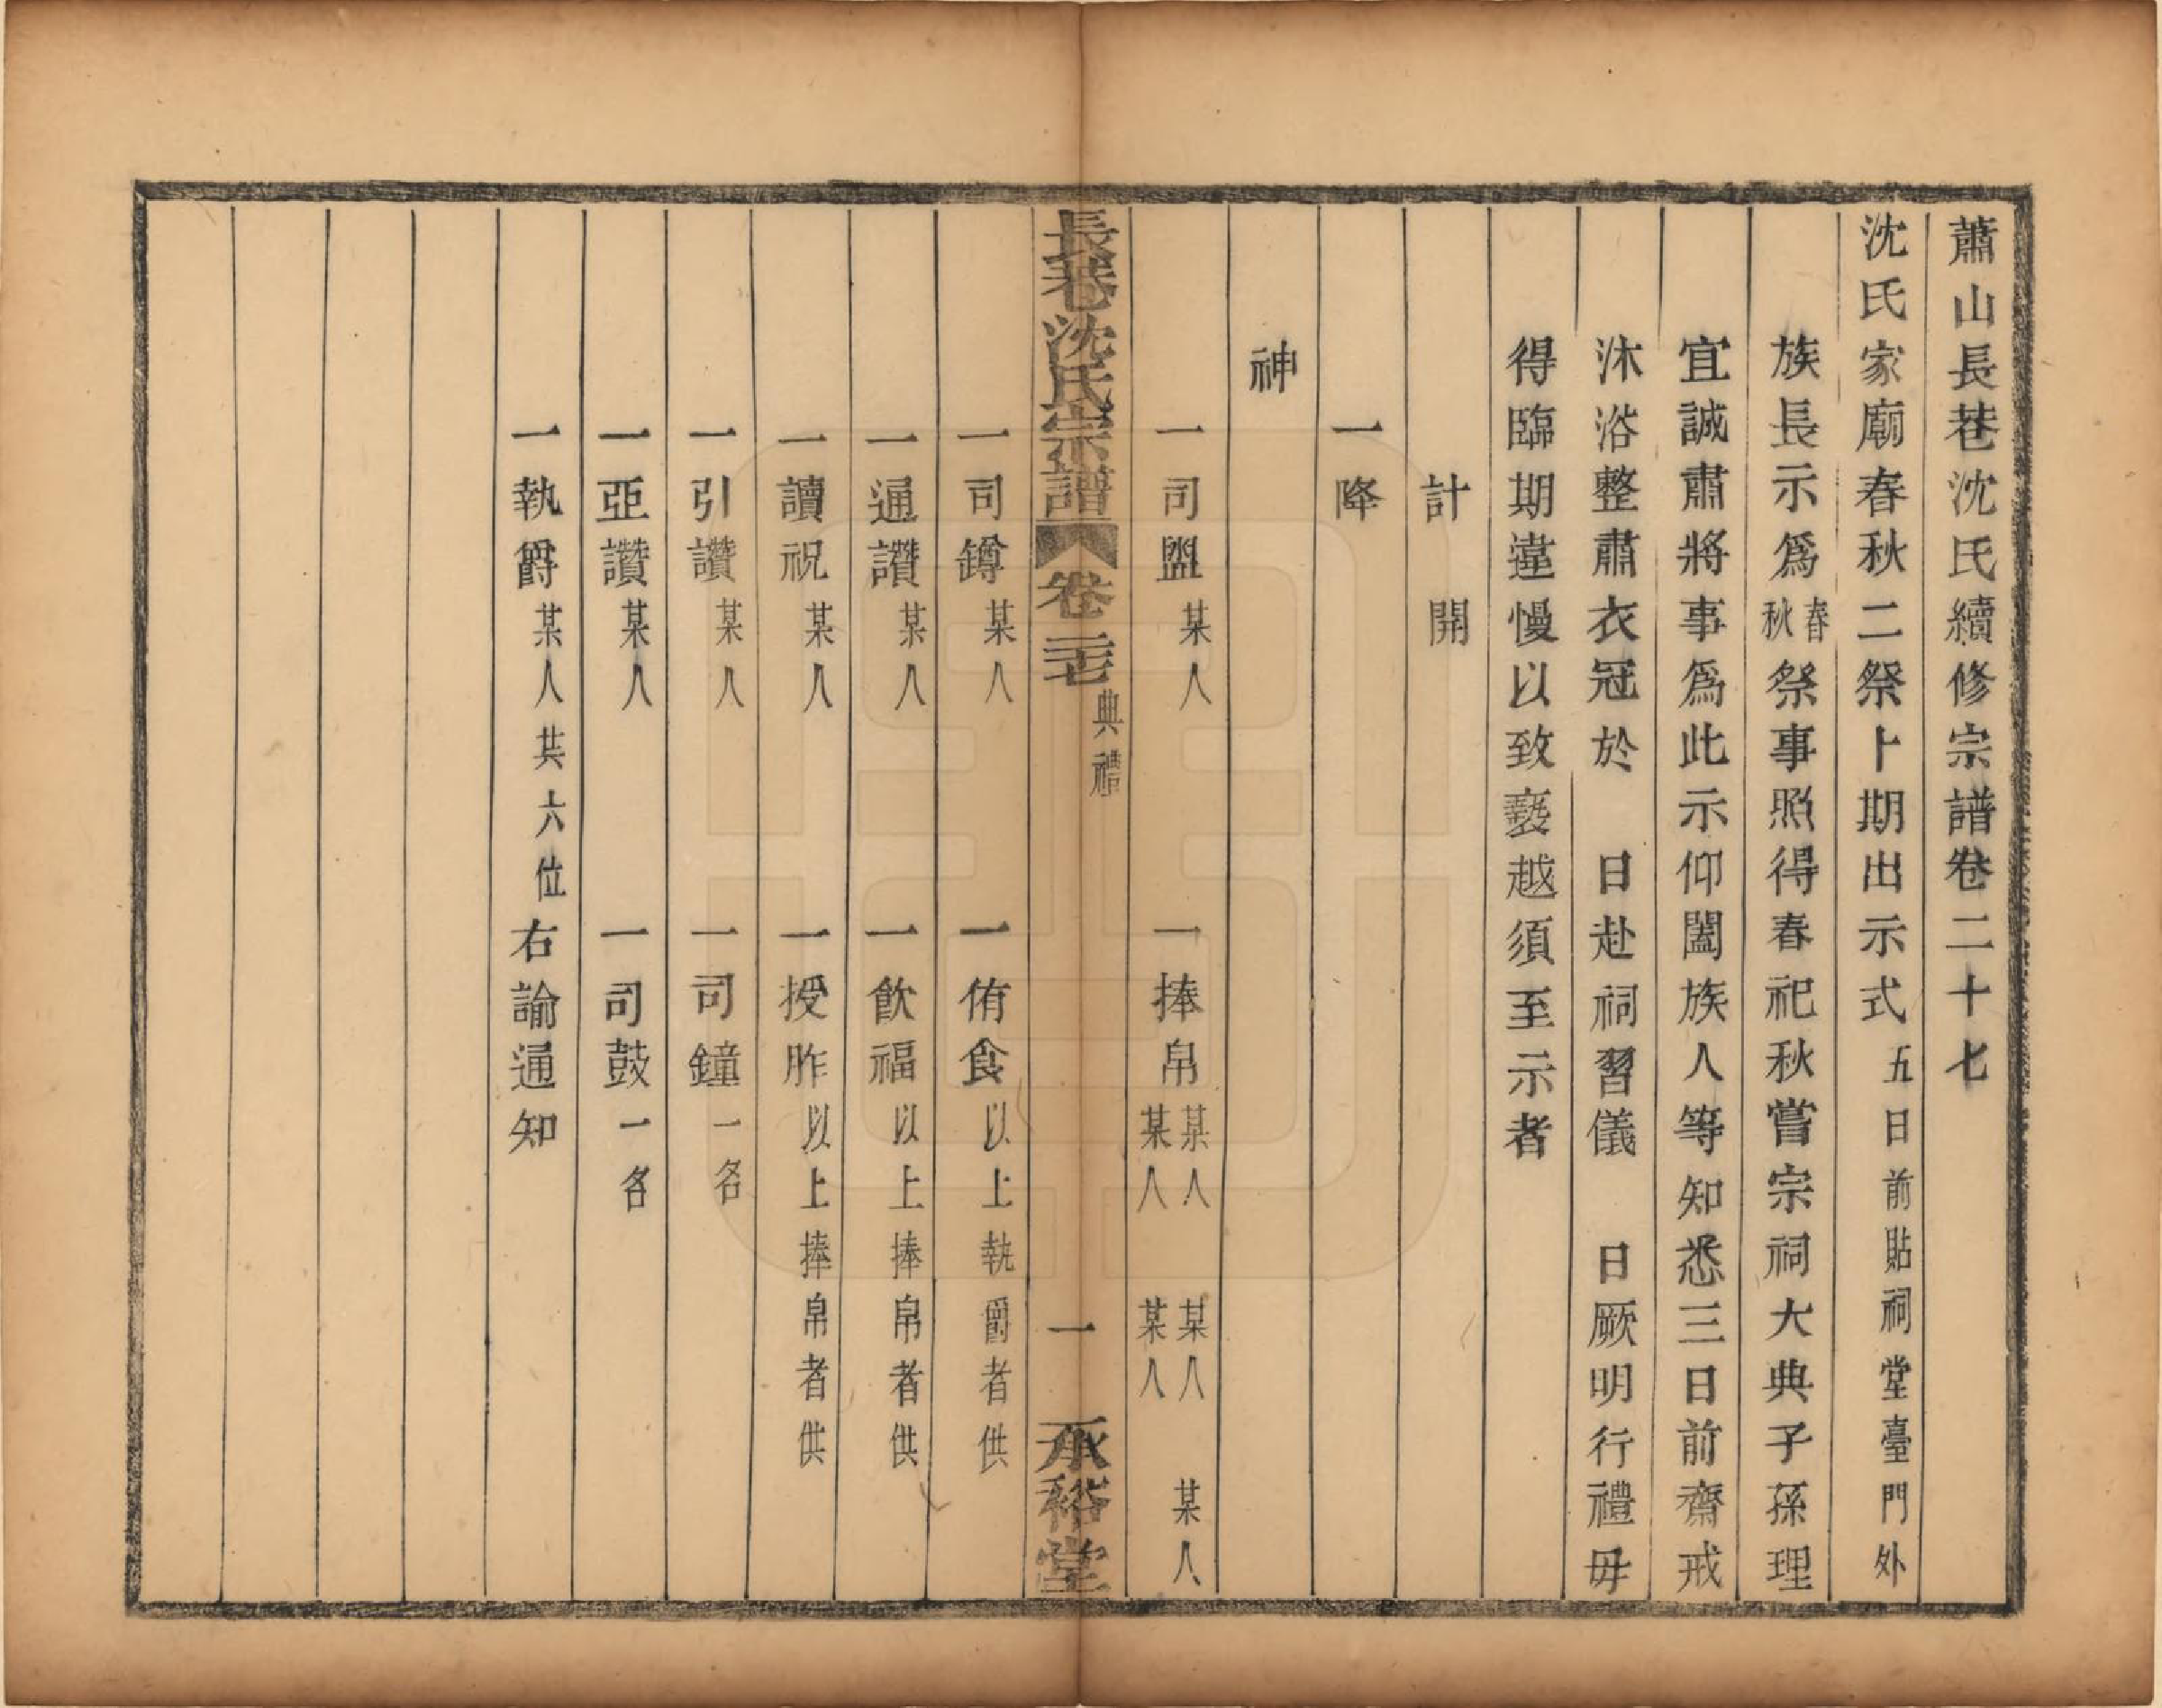 蕭山長巷沈氏續修宗譜卷二十七
沈氏家廟春秋二祭卜期出示式五日前貼祠堂臺門外
族長示爲春秋祭事照得春祀秋嘗宗祠大典子孫理
宜誠肅將事爲此示仰闔族人等知悉三日前齋戒
沐浴整肅衣冠於　日赴祠習儀　日厥明行禮毋
得臨期違慢以致褻越須至示者
計　開
一降
神
一司盥某人　一捧帛某人某人　某人某人　某人
長巷沈氏宗譜　卷二十七　典禮　一　承裕堂
一司罇某人　一侑食以上執爵者供
一通讚某人　一飲福以上捧帛者供
一讀祝某人　一授胙以上捧帛者供
一引讚某人　一司鐘一名
一亞讚某人　一司鼓一名
一執爵某人共六位　右諭通知